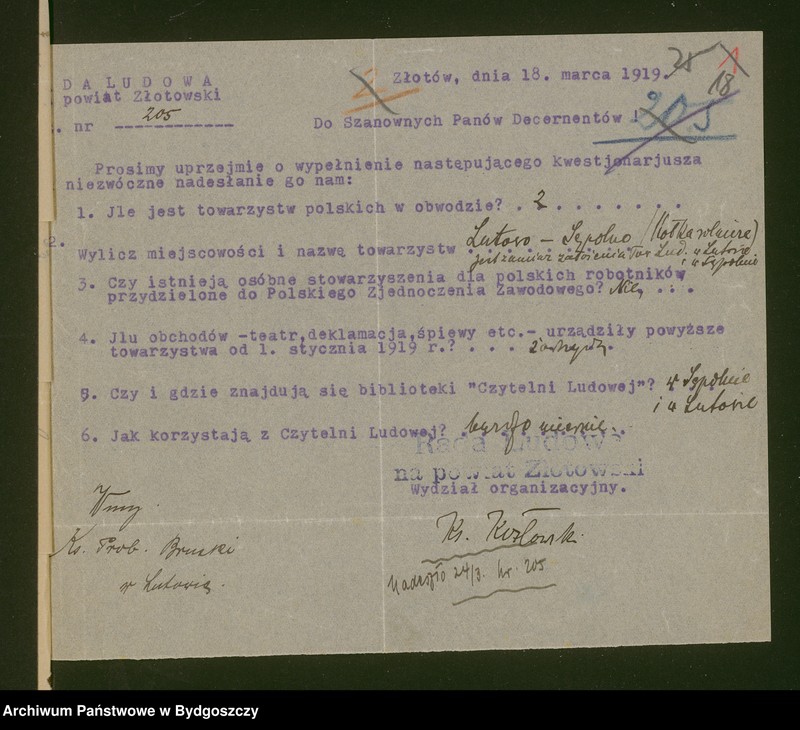 DA LUDOWA
powiat Złotowski
. nr 205
Złotów, dnia 18. marca 1919.
1
18
Do Szanownych Panów Decernentów
205
Prosimy uprzejmie o wypełnienie następującego kwestjonarjusza
niezwóczne nadesłanie go nam:
1. Jle jest towarzystw polskich w obwodzie? . 2 . . . . . . .
2.
Wylicz miejscowości i nazwę towarzystw Lutowo – Sępolno
jest zamiar założenia Tow Lud. w Lutowie
i w Sępolnie
3. Czy istnieją osóbne stowarzyszenia dla polskich robotników
przydzielone do Polskiego Zjednoczenia Zawodowego? Nie, . . .
4. Jlu obchodów -teatr,deklamacja,śpiewy etc.- urządziły powyższe
towarzystwa od 1. stycznia 1919 r.? . . .
5. Czy i gdzie znajdują się biblioteki "Czytelni Ludowej"? w Sępolnie
i w Lutowie
6. Jak korzystają z Czytelni Ludowej?
Rada Ludowa
na powiat Złotowski
Wydział organizacyjny.
Wny.
Ks. Prob. Bruski
w Lutowie.
Ks. Kozłowski.
Nadeszło 24/3. nr. 205
Archiwum Państwowe w Bydgoszczy